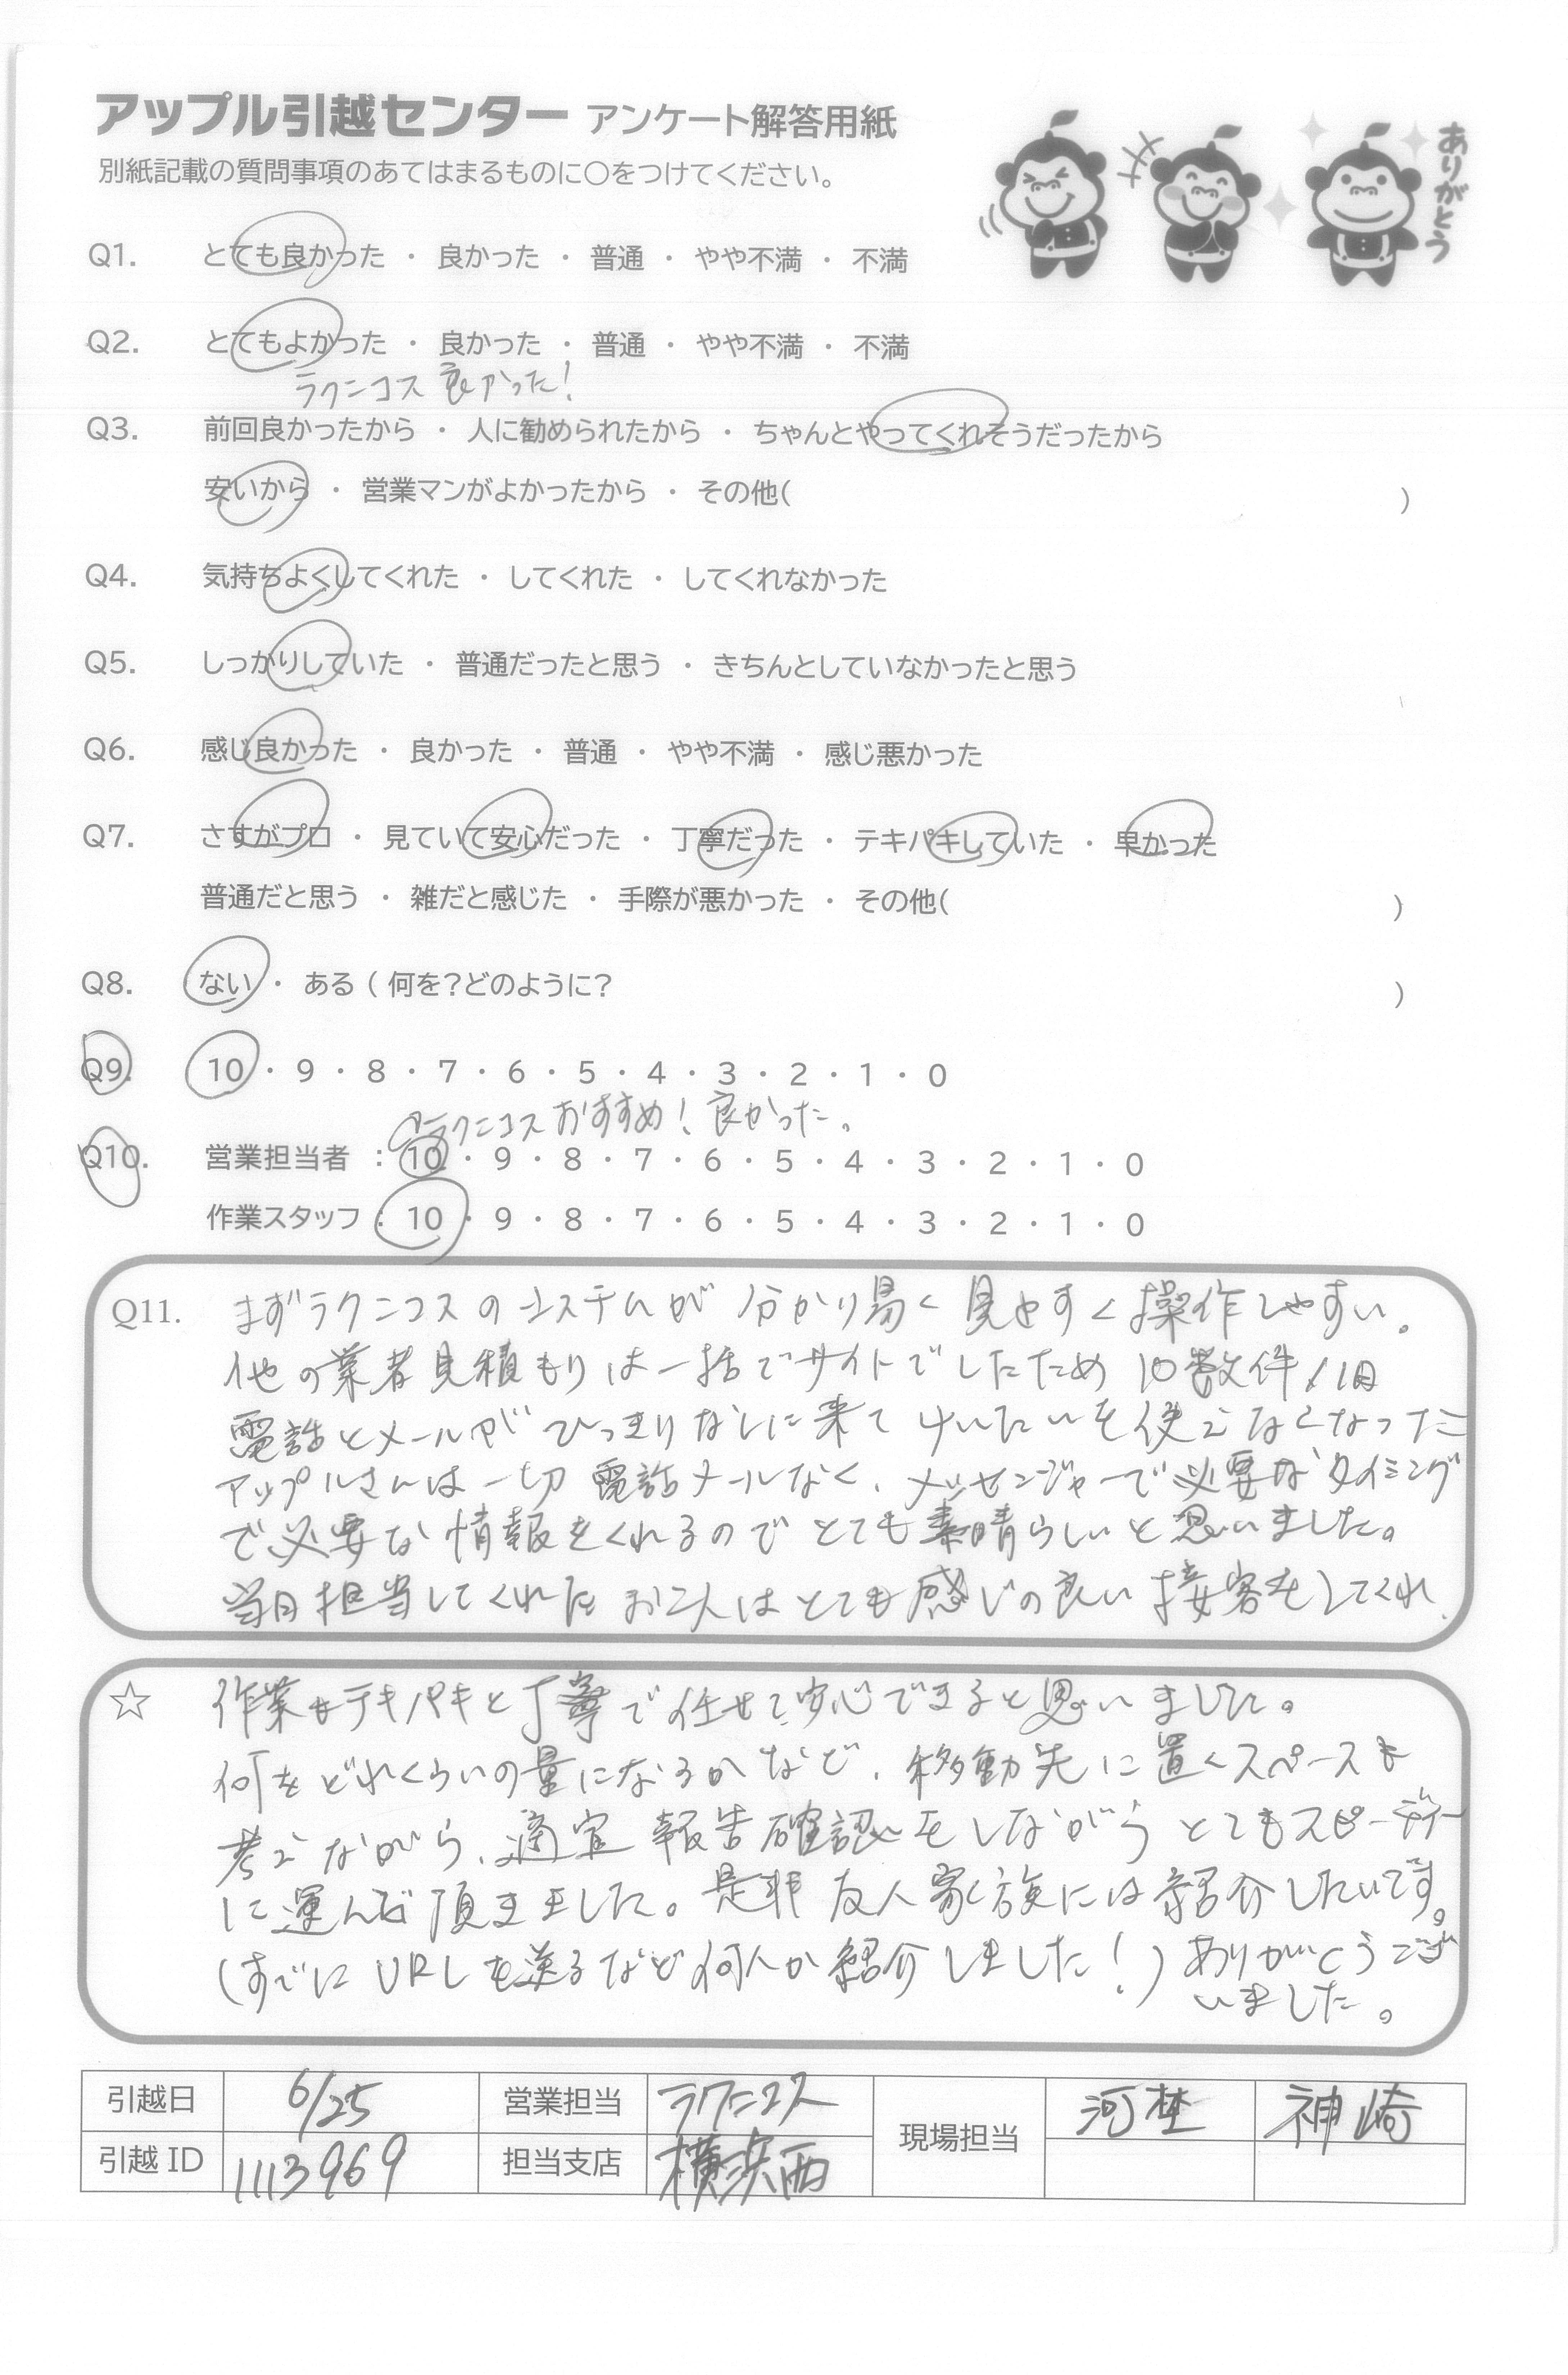 アップル引越センター アンケート解答用紙
別紙記載の質問事項のあてはまるものに○をつけてください。
ありがとう
Q1. とても良かった ・ 良かった ・ 普通 ・ やや不満 ・ 不満
Q2. とてもよかった ・ 良かった ・ 普通 ・ やや不満 ・ 不満
ラクニコス 良かった!
Q3. 前回良かったから ・ 人に勧められたから ・ ちゃんとやってくれそうだったから
安いから ・ 営業マンがよかったから ・ その他( )
Q4. 気持ちよくしてくれた ・ してくれた ・ してくれなかった
Q5. しっかりしていた ・ 普通だったと思う ・ きちんとしていなかったと思う
Q6. 感じ良かった ・ 良かった ・ 普通 ・ やや不満 ・ 感じ悪かった
Q7. さすがプロ ・ 見ていて安心だった ・ 丁寧だった ・ テキパキしていた ・ 早かった
普通だと思う ・ 雑だと感じた ・ 手際が悪かった ・ その他( )
Q8. ない ・ ある ( 何を?どのように? )
Q9. 10 ・ 9 ・ 8 ・ 7 ・ 6 ・ 5 ・ 4 ・ 3 ・ 2 ・ 1 ・ 0
ラクニコス おすすめ! 良かった。
Q10. 営業担当者 : 10 ・ 9 ・ 8 ・ 7 ・ 6 ・ 5 ・ 4 ・ 3 ・ 2 ・ 1 ・ 0
作業スタッフ : 10 ・ 9 ・ 8 ・ 7 ・ 6 ・ 5 ・ 4 ・ 3 ・ 2 ・ 1 ・ 0
Q11. まずラクニコスのシステムが 分かり易く 見やすく 操作しやすい。
他の業者見積もりは一括でサイトでしたため 10数件/1日
電話とメールが ひっきりなしに来て けいたいを使えなくなった
アップルさんは一切 電話メールなく、メッセンジャーで必要なタイミング
で必要な情報をくれるので とても素晴らしいと思いました。
当日担当してくれた お二人はとても感じの良い接客をしてくれ、
☆ 作業もテキパキと丁寧で任せて安心できると思いました。
何をどれくらいの量になるかなど、移動先に置くスペースも
考えながら、適宜 報告確認をしながら とてもスピーディー
に運んで頂きました。是非 友人家族には紹介したいです。
(すでにURLを送るなど何人か紹介しました!) ありがとうござ
いました。
引越日 6/25 営業担当 ラクニコス 現場担当 河埜 神崎
引越ID 1113969 担当支店 横浜西